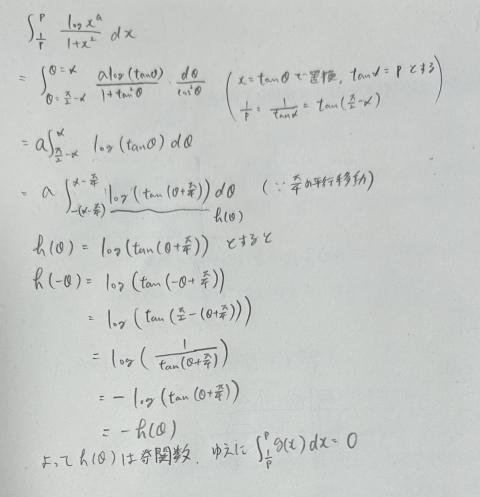 ∫_{1/p}^{p} log x^a / (1+x²) dx
= ∫_{θ=π/2-α}^{θ=α} a log(tanθ) / (1+tan²θ) · dθ/cos²θ (x=tanθで置換, tanα=pとする
1/p = 1/tanα = tan(π/2-α))
= a∫_{π/2-α}^{α} log(tanθ) dθ
= a ∫_{-(α-π/4)}^{α-π/4} log(tan(θ+π/4)) dθ (∵ π/4の平行移動)
h(θ)
h(θ) = log(tan(θ+π/4)) とすると
h(-θ) = log(tan(-θ+π/4))
= log(tan(π/2-(θ+π/4)))
= log(1/tan(θ+π/4))
= -log(tan(θ+π/4))
= -h(θ)
よってh(θ)は奇関数. ゆえに ∫_{1/p}^{p} g(x)dx=0